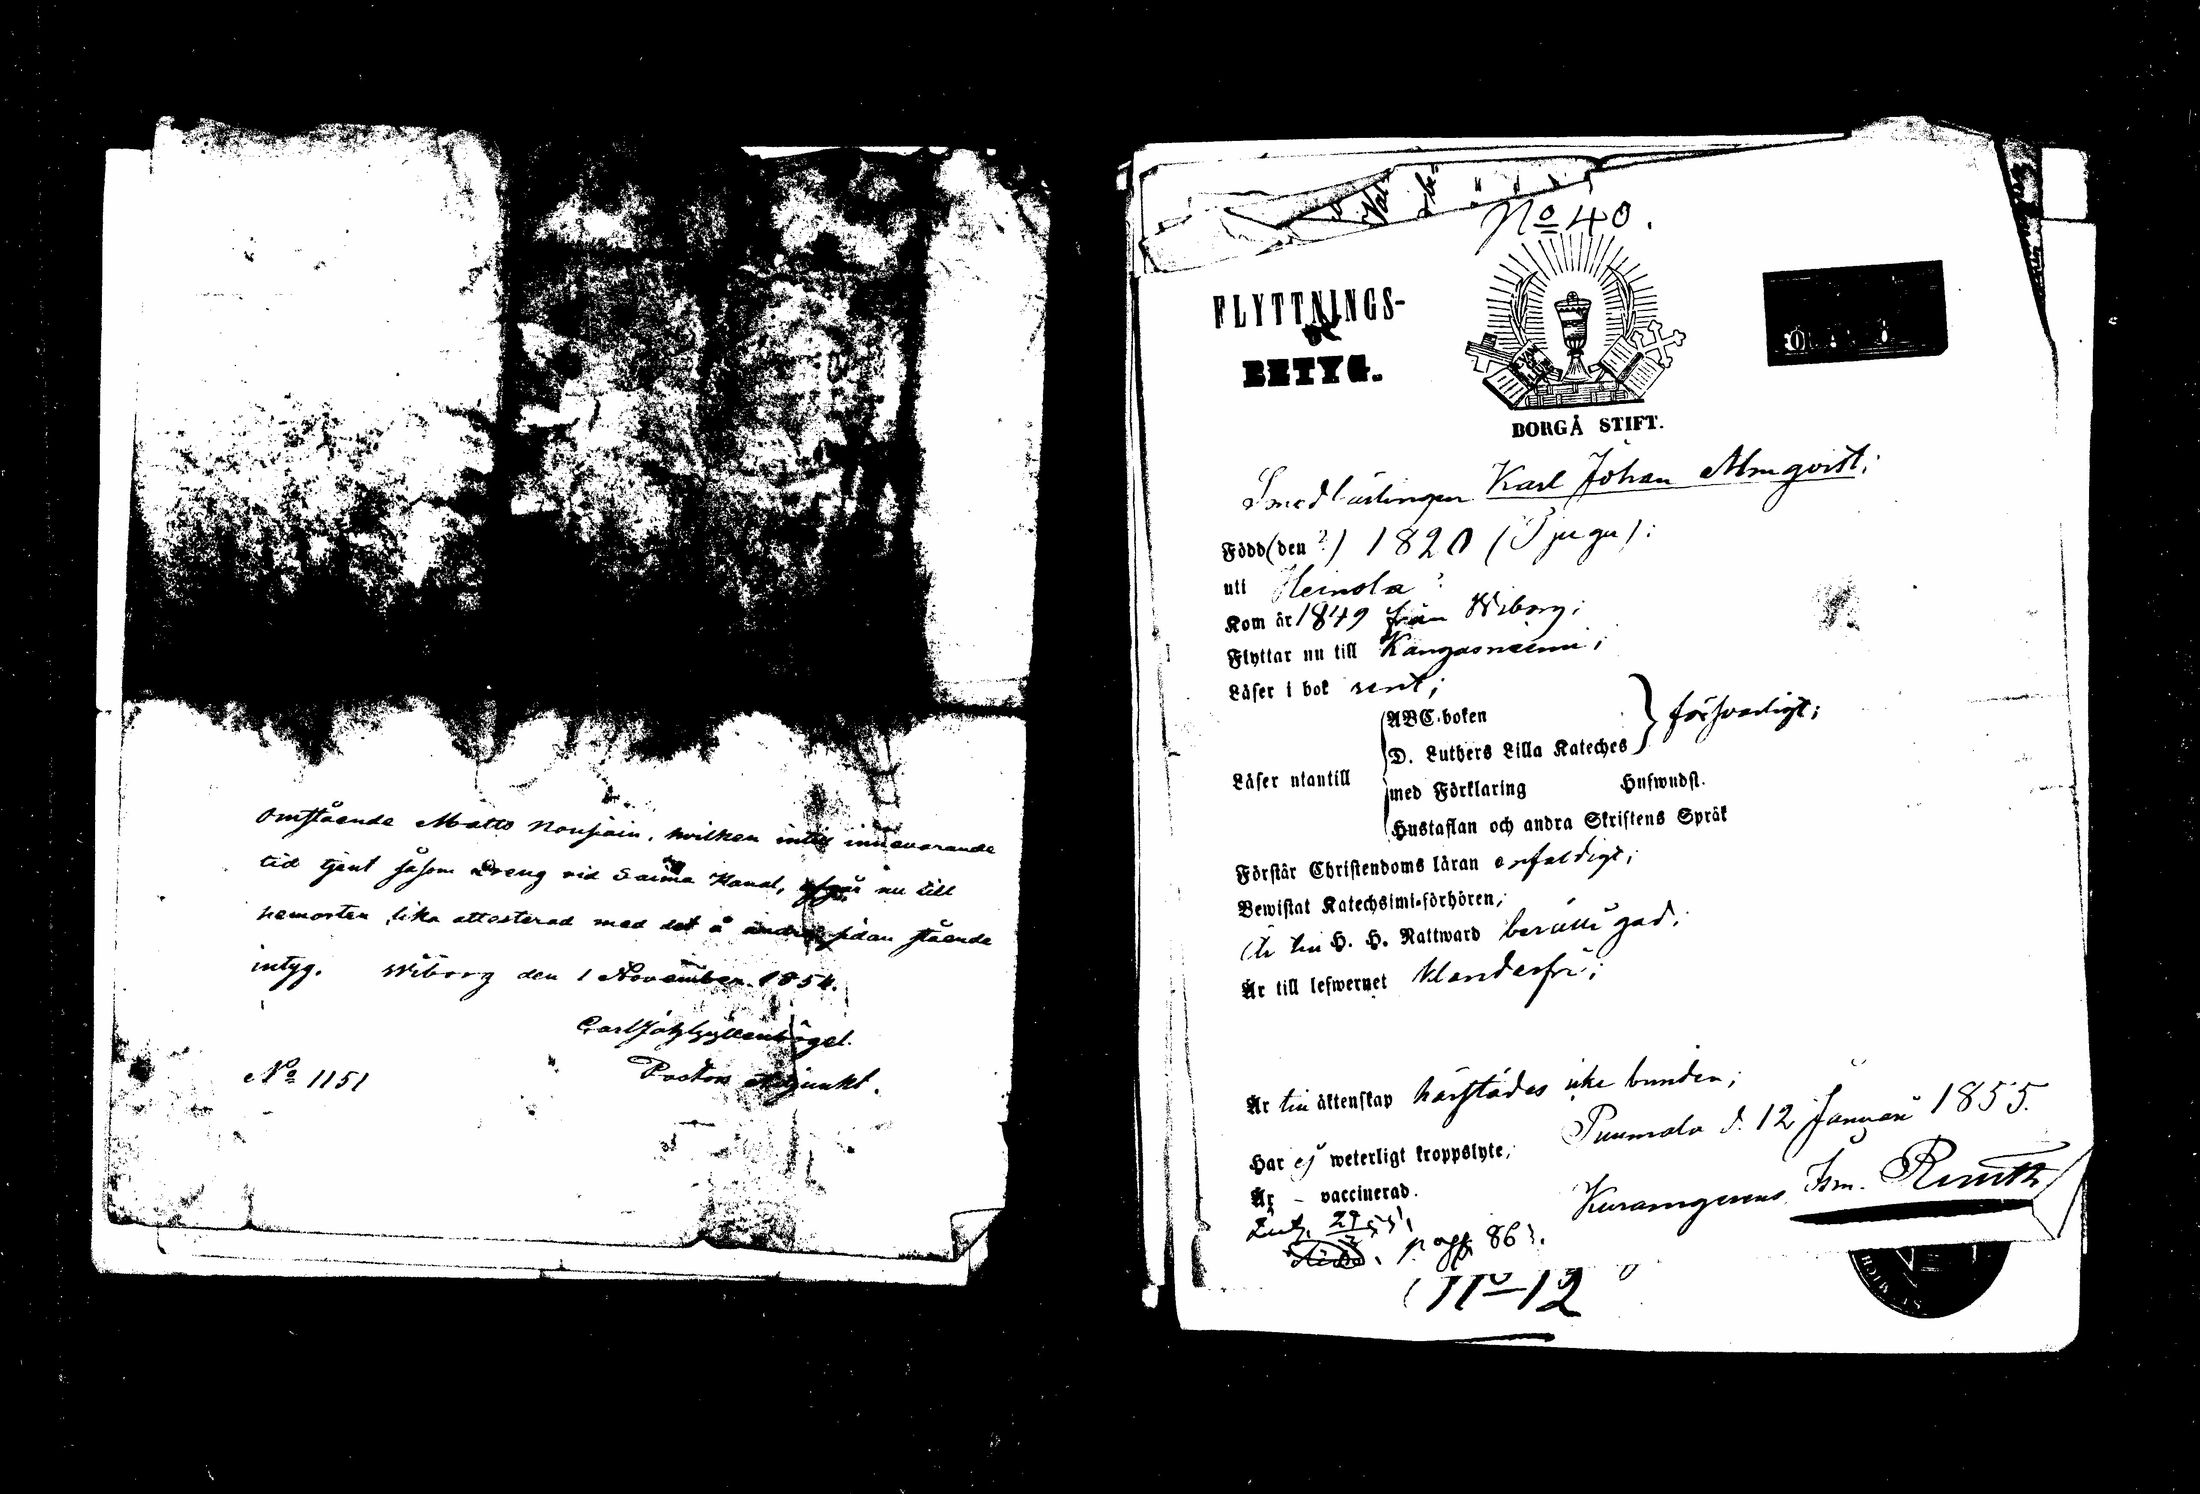 Omstående Matts Nousiain, hvilken intill innevarande
tid tjent såsom Dreng vid Saima Kanal, afgår nu till
hemorten lika attesterad med det å andra sidan stående
intyg. Wiborg den 1 November 1854.
Pastors Adjunkt.
No 1151
No 40.
FLYTTNINGS-
BETYG.
BORGÅ STIFT.
Smedlärlingen Karl Johan Almqvist;
Född (den ?) 1820 (Tjugu);
uti Heinola ?
Kom år 1849 från Wiborg;
Flyttar nu till Kangasniemi;
Läser i bok rent;
ABC-boken
D. Luthers Lilla Kateches
försvarligt;
Läser utantill
med Förklaring Huswudst.
Hustaflan och andra Skriftens Språk
Förstår Christendoms läran enfaldigt;
Bewistat Katechsimi-förhören;
Är till H. H. Nattward berättigad;
Är till lefwernet klanderfri;
Är till äktenskap härstädes icke bunden;
Puumala d. 12 Januari 1855.
Har ej weterligt kroppslyte;
Är - vaccinerad.
pag 863.
No 12